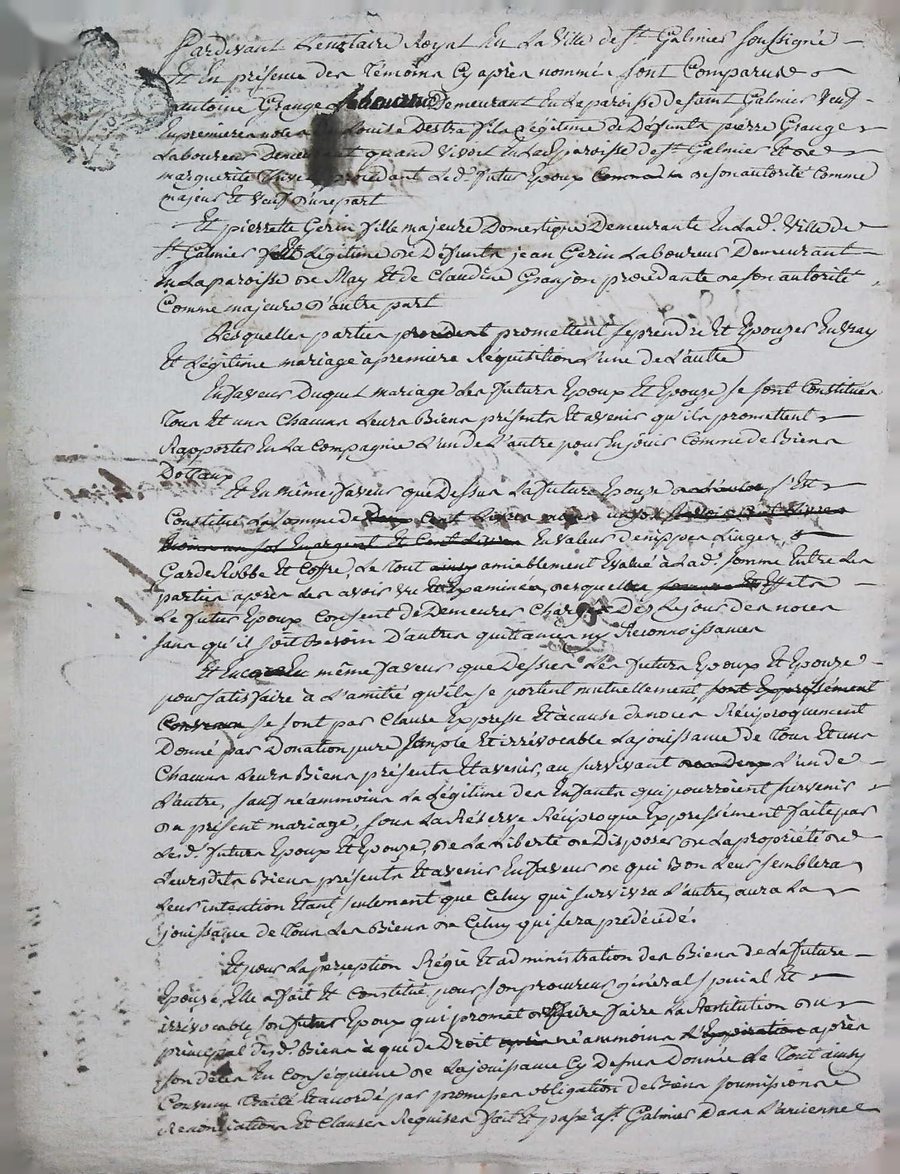 Pardevant Le notaire Royal En La Ville de St Galmier soussigné
Et En présence des Témoins Cy après nommés sont Comparus
antoine Grange Laboureur Demeurant En La paroisse de saint Galmier Veuf
En premieres noces Louise Destra fils Légitime de Défunts pierre Grange
Laboureur Demeurant quand Vivoit En La de paroisse de St Galmier et de
marguerite procédant Led. futur Epoux de son autorité Comme
majeur Et Veuf d'une part
Et pierrette Gerin fille majeure Domestique Demeurante En Lad. Ville de
St Galmier fille Légitime de Défunts jean Gerin Laboureur Demeurant
En La paroisse de May Et de Claudine Granjon procédante de son autorité
Comme majeure d'autre part
Lesquelles parties promettent se prendre Et Epouser En vray
Et Légitime mariage à premiere Réquisition L'une de L'autre
En faveur Duquel mariage Les futurs Epoux Et Epouze se sont Constitués
Tous Et uns Chacuns Leurs Biens présents Et avenir qu'ils promettent
Rapporter En La Compagnie L'un de L'autre pour En jouir Comme de Biens
Dotaux
Et En même faveur que Dessus La future Epouze s'Est
Constitué La somme de Cent Livres
En valeur de nippes Linges
Garderobbe Et Coffre, Le Tout amiablement Evalué à Lad. somme Entre Les
parties après Les avoir vu Et Examinés, desquels Effets
Le futur Epoux Consent de Demeurer Chargé Dès Le jour des noces
sans qu'il soit Besoin D'autres quittances ny Reconnoissances
Et En même faveur que Dessus Les futurs Epoux Et Epouze
pour satisfaire à L'amitié qu'ils se portent mutuellement sont Expressément
Convenus se sont par Clause Expresse Et à cause de noces Réciproquement
Donné par Donation pure simple Et irrévocable La jouissance de Tous Et uns
Chacuns Leurs Biens présents Et avenir, au survivant L'un de
L'autre, sauf néammoins La Légitime des Enfants qui pourroient survenir
du présent mariage, sous La Réserve Réciproque Expressément faite par
Lesd. futurs Epoux Et Epouze, de La Liberté de Disposer de La propriété de
Leursdits Biens présents Et avenir En faveur de qui Bon Leur semblera
Leur intention Etant seulement que Celuy qui survivra L'autre, aura La
jouissance de Tous Les Biens de Celuy qui sera prédécédé.
Et pour La perception Régie Et administration des Biens de La future
Epouze, Elle a fait Et Constitué pour son procureur général spécial Et
irrévocable son futur Epoux qui promet de faire La Restitution du
principal desd. Biens à qui de Droit néammoins L'Expiration après
son décès En Conséquence de La jouissance Cy Dessus Donnée Le Tout ainsy
Convenu Traité Et accordé par promesses obligation de Biens soumissions
Renonciations Et Clauses Requises fait Et passé à St Galmier Dans L'ancienne